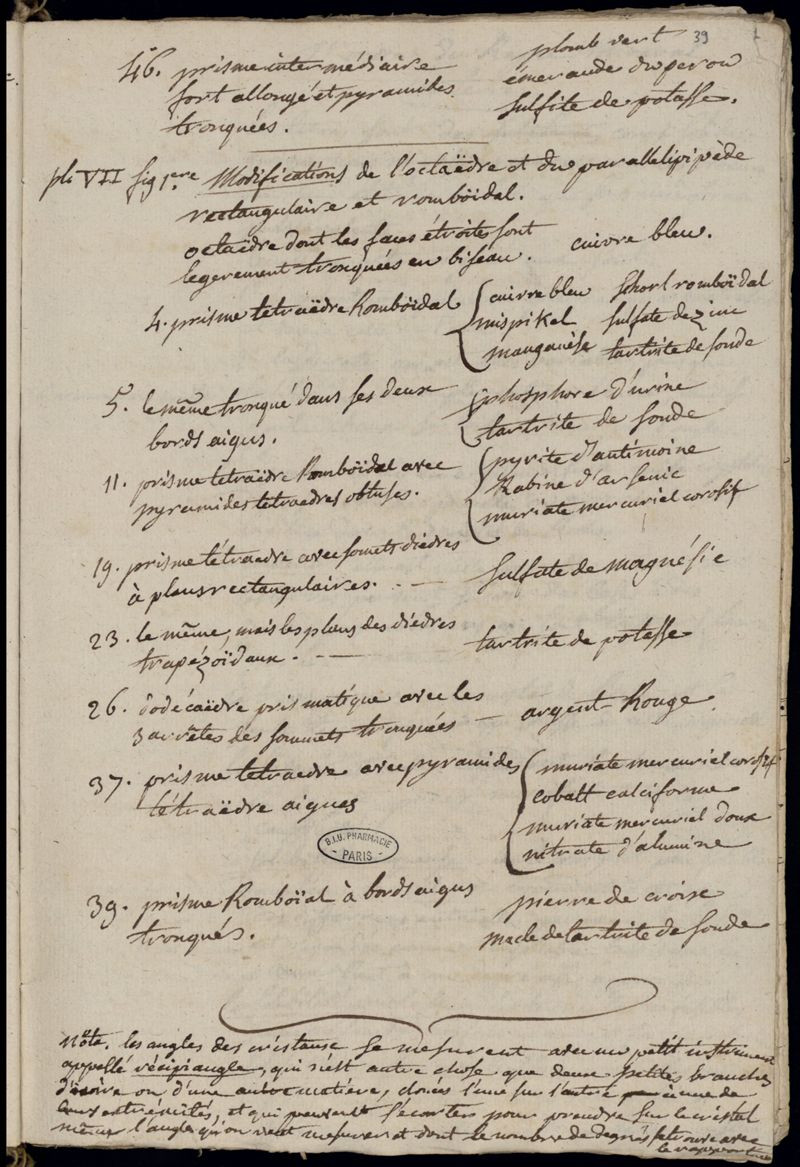 39
46. prisme intermédiaire
fort allongé et pyramides
tronquées.
plomb vert
émeraude du perou
sulfite de potasse.
pl. VII fig 1.ere Modifications de l'octaëdre et du parallelipipède
rectangulaire et romboïdal.
octaëdre dont les faces étroites sont
legerement tronquées en biseau.
cuivre bleu.
4. prisme tetraëdre Romboïdal
cuivre bleu schorl romboïdal
mispikel sulfate de zinc
manganèse tartrite de soude
5. le même tronqué dans ses deux
bords aigus.
phosphore d'urine
tartrite de soude
11. prisme tetraëdre Romboïdal avec
pyramides tetraedres obtuses.
pyrite d'antimoine
Rubine d'arsenic
muriate mercuriel corosif
19. prisme tétraedre avec somets diédres
à plans rectangulaires. . —
sulfate de magnésie
23. le même, mais les plans des diedres
trapézoïdaux. —
tartrite de potasse
26. dodécaëdre prismatique avec les
3 arrêtes des sommets tronquées —
argent Rouge.
37. prisme tetraedre avec pyramides
tétraëdre aigues
muriate mercuriel corosif
cobalt calciforme
muriate mercuriel doux
nitrate d'alumine
B.I.U. PHARMACIE
- PARIS -
39. prisme Romboïal à bords aigus
tronqués.
pierre de croix
macle de tartrite de soude
Nöte. les angles des cristaux se mesurent avec un petit instrument
appellé récipiangle, qui n'est autre chose que deux petites branches
d'ivoire ou d'une autre matière, clouées l'une sur l'autre par une de
leurs extrémités, et qui peuvent s'ecarter pour prendre sur le cristal
même l'angle qu'on veut mesurer et dont le nombre de degrés se trouve avec
le rapporteur